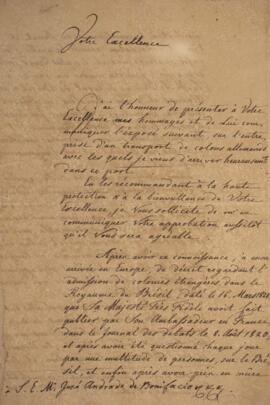 Votre Excellence
J'ai l'honneur de présenter à Votre
Excellence mes hommages et de Lui com,
muniquer l'exposé suivant, sur l'entre,
prise d'un transport de colons allemands
avec les quels je viens d'arriver heureusement
dans ce port.
En les recommandant à la haute
protection & à la bienveillance de Votre
Excellence, je Vous sollicite de me
communiquer Votre approbation aussitôt
qu'il Vous sera agréable.
Après avoir eu connoissance, à mon
arrivée en Europe, du décret regardant l'
admission de colonies étrangères dans le
Royaume du Brésil, daté le 16. Mars 1820,
que Sa Majesté Très Fidèle avoit fait
publier par Son Ambassadeur en France
dans le journal des débats le 8. Août 1820,
et après avoir été questionné chaque jour
par une multitude de personnes, sur le Bré,
sil, et enfin après avoir, pris en mûre
S. E. Mr. José Andrade de Bonifacio